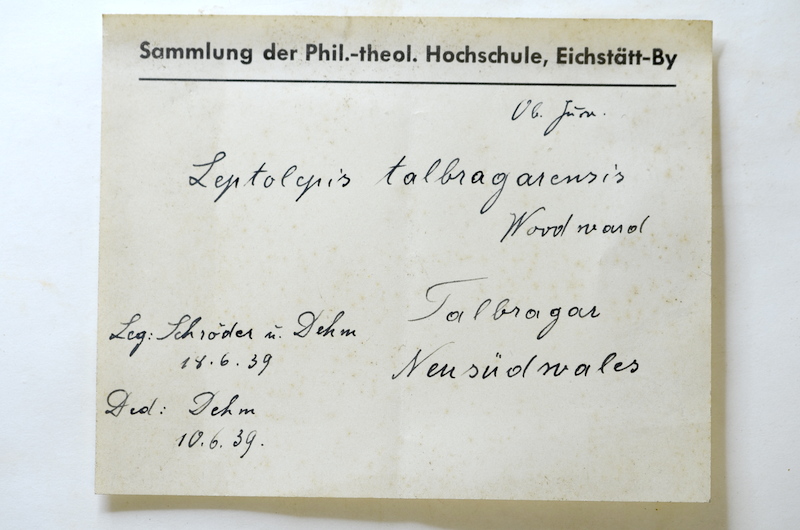 Sammlung der Phil.-theol. Hochschule, Eichstätt-By
Ob. Jura.
Leptolepis talbragarensis
Woodward
Talbragar
Neusüdwales
Leg: Schröder u. Dehm
18.6.39
Ded: Dehm
10.6.39.